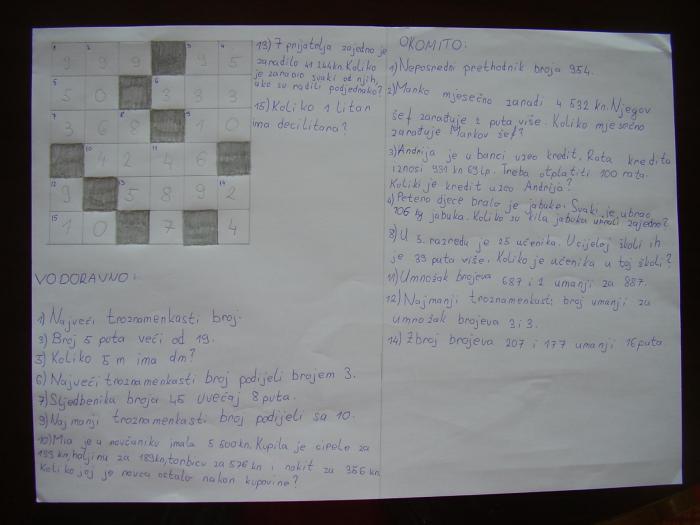 9 9 9 9 5
5 0 3 3 3
3 6 8 1 0
4 2 4 6
9 5 8 9 2
1 0 7 4
13) 7 prijatelja zajedno je
zaradilo 41 244 kn. Koliko
je zaradio svaki od njih,
ako su radili podjednako?
15) Koliko 1 litar
ima decilitara?
VODORAVNO:
1) Najveći troznamenkasti broj.
3) Broj 5 puta veći od 19.
5) Koliko 5 m ima dm?
6) Najveći troznamenkasti broj podijeli brojem 3.
7) Sljedbenika broja 45 uvećaj 8 puta.
9) Najmanji troznamenkasti broj podijeli sa 10.
10) Mia je u novčaniku imala 5 500 kn. Kupila je cipele za
199 kn, haljinu za 189 kn, torbicu za 576 kn i nakit za 356 kn.
Koliko joj je novca ostalo nakon kupovine?
OKOMITO:
1) Neposredni prethodnik broja 954.
2) Marko mjesečno zaradi 4 532 kn. Njegov
šef zarađuje 2 puta više. Koliko mjesečno
zarađuje Markov šef?
3) Andrija je u banci uzeo kredit. Rata kredita
iznosi 931 kn 69 lp. Treba otplatiti 100 rata.
Koliki je kredit uzeo Andrija?
4) Petero djece bralo je jabuke. Svaki je ubrao
106 kg jabuka. Koliko su kila jabuka ubrali zajedno?
8) U 5. razredu je 25 učenika. U cijeloj školi ih
je 33 puta više. Koliko je učenika u toj školi?
11) Umnožak brojeva 687 i 2 umanji za 887.
12) Najmanji troznamenkasti broj umanji za
umnožak brojeva 3 i 3.
14) Zbroj brojeva 207 i 177 umanji 16 puta